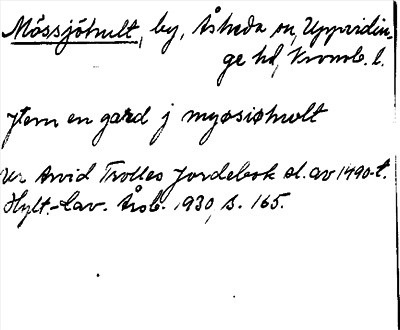 Mössjöhult, by, Åsheda sn, Uppvidin-
ge hd, Kronob. l.
Jtem en gard j myøsiøhwlt
Ur Arvid Trolles Jordebok sl. av 1490-t.
Hylt.-Cav. Årsb. 1930, s. 165.